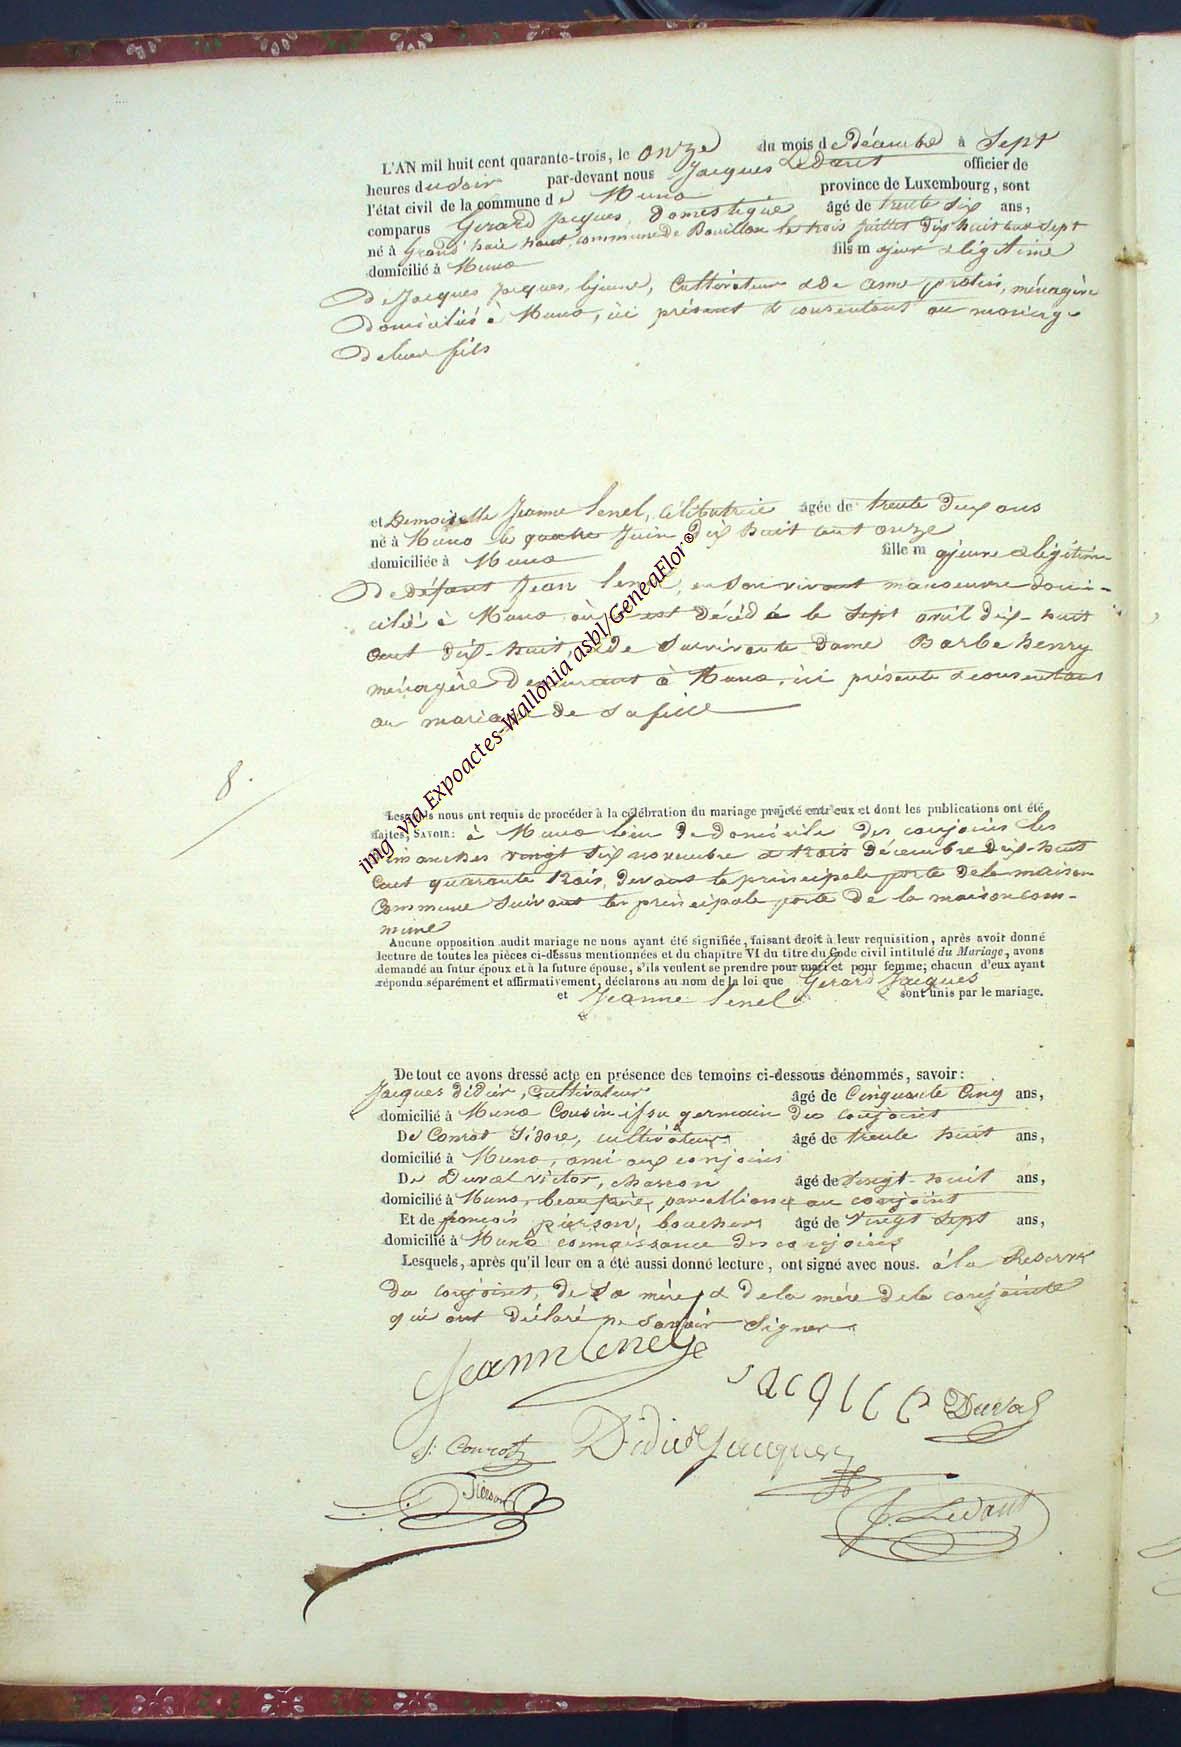 L'AN mil huit cent quarante-trois, le onze du mois de Décembre à Sept
heures du soir par-devant nous Jacques Ledant officier de
l'état civil de la commune de Muno province de Luxembourg, sont
comparus Gerard Jacques, Domestique âgé de trente Six ans,
né à Grand' haie haut, commune de Bouillon le trois Juillet Dix huit cent Sept
domicilié à Muno fils majeur & légitime
De Jacques Jacques, le jeune, Cultivateur & De anne protin, ménagère
Domiciliés à Muno, ici présent & consentant au mariage
De leur fils
et Demoiselle Jeanne Lenel, Célibatrie âgée de trente Deux ans
né à Muno le quatre Juin Dix huit cent onze
domiciliée à Muno fille majeure & légitime
De Défunt Jean Lenel, en son vivant manoeuvre domi-
cilié à Muno où est Décédé le Sept avril dix-huit
Cent dix-huit, & De Survivante Dame Barbe henry
ménagère Demeurant à Muno, ici présente & consentant
au mariage De Sa fille
8.
Lesquels nous ont requis de procéder à la célébration du mariage projeté entr'eux et dont les publications ont été
faites, SAVOIR: à Muno lieu De domicile Des conjoints les
Dimanches vingt Six novembre & trois Décembre Dix-huit
Cent quarante trois, devant la principale porte De la maison
Commune Suivant la principale porte De la maison com-
mune
Aucune opposition audit mariage ne nous ayant été signifiée, faisant droit à leur requisition, après avoir donné
lecture de toutes les pièces ci-dessus mentionnées et du chapitre VI du titre du Code civil intitulé du Mariage, avons
demandé au futur époux et à la future épouse, s'ils veulent se prendre pour mari et pour femme; chacun d'eux ayant
répondu séparément et affirmativement, déclarons au nom de la loi que Gerard Jacques
et Jeanne Lenel sont unis par le mariage.
De tout ce avons dressé acte en présence des temoins ci-dessous dénommés, savoir:
Jacques Didier, Cultivateur âgé de Cinquante Cinq ans,
domicilié à Muno Cousin issu germain Du conjoint
De Conrot Isidore, cultivateur âgé de trente huit ans,
domicilié à Muno, ami aux conjoints
De Duval victor, charron âgé de Vingt-huit ans,
domicilié à Muno, beau frère, par alliance au conjoint
Et de françois pierson, boucher âgé de Vingt Sept ans,
domicilié à Muno connaissance des conjoints
Lesquels, après qu'il leur en a été aussi donné lecture, ont signé avec nous. à la Reserve
Du conjoint, De Sa mère, & De la mère De la conjointe
qui ont Déclaré ne Savoir Signer
Jacques Duval
J: Conrot Didier Jacques
Pierson J. Ledant
img via Expoactes-Wallonia asbl/GeneaFlor©